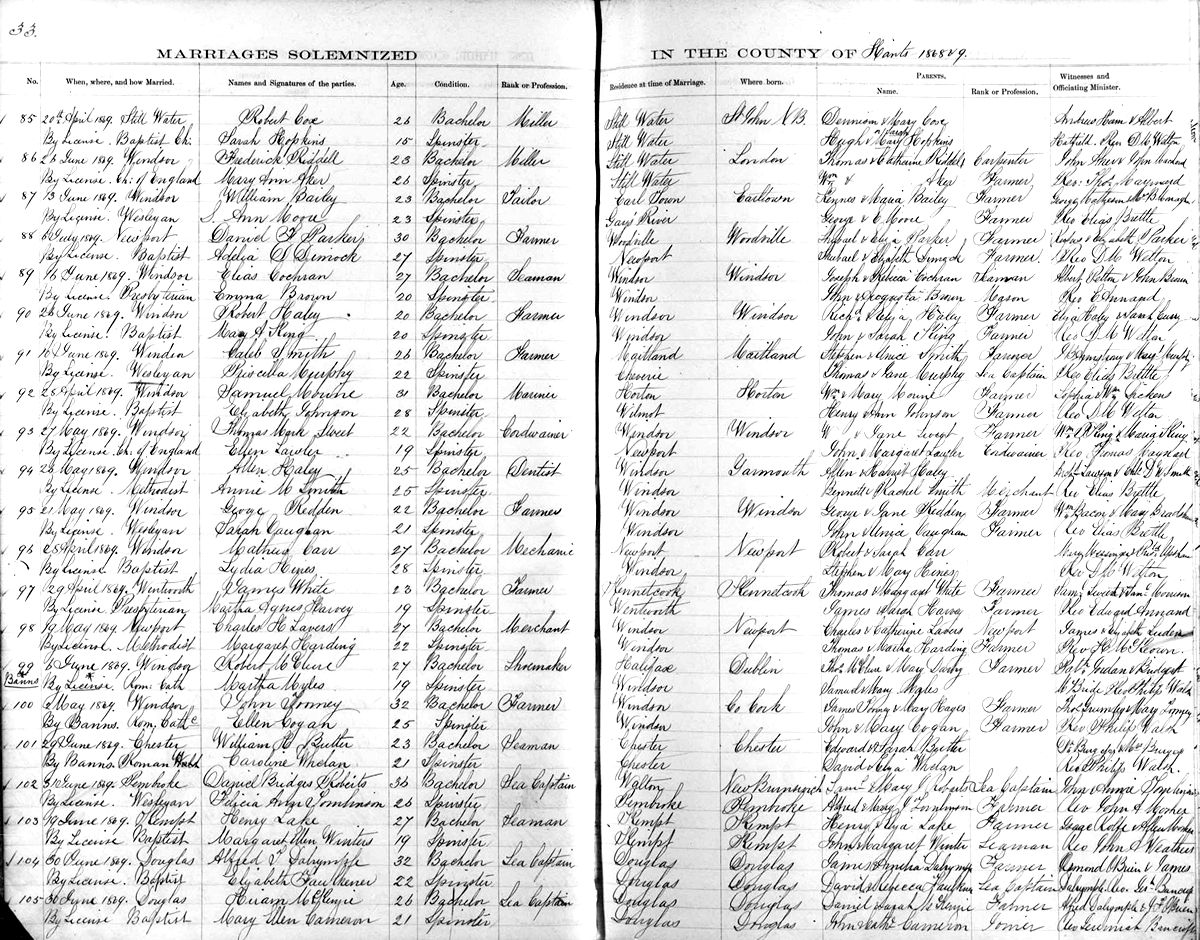 33.
MARRIAGES SOLEMNIZED IN THE COUNTY OF Hants 1868 & 9.
No. When, where, and how Married. Names and Signatures of the parties. Age. Condition. Rank or Profession. Residence at time of Marriage. Where born. PARENTS. Witnesses and
Name. Rank or Profession. Officiating Minister.
85 20th April 1869. Still Water Robert Coxe 26 Bachelor Miller Still Water St John N.B. & Mary Coxe Andrew Ham & Albert
By License. Baptist Ch. Sarah Hopkins 15 Spinster Still Water Hugh & Mary Hopkins Rev D M Welton
86 26 June 1869. Windsor Frederick Riddell 23 Bachelor Miller Still Water London Thomas & Catharine Riddell Carpenter John
By License. Ch. of England Mary Ann Aker 26 Spinster Still Water Wm & Aker Farmer Rev. Thos Maynard
87 13 June 1869. Windsor William Bailey 23 Bachelor Tailor Earl Town Earltown & Maria Bailey Farmer George
By License. Wesleyan Ann Moore 23 Spinster Gays River George & E Moore Farmer Rev Elias Brettle
88 6 July 1869. Newport Daniel F Parker 30 Bachelor Farmer Woodville Woodville & Eliza Parker Farmer Rufus & Elizabeth Parker
By License. Baptist Adelia S Dimock 27 Spinster Newport & Elizabeth Dimock Farmer. Rev D M Welton
89 16 June 1869. Windsor Elias Cochran 27 Bachelor Seaman Windsor Windsor Joseph & Rebecca Cochran Seaman Albert & John
By License. Presbyterian Emma Brown 20 Spinster Windsor John & Augusta Brown Mason Rev E Annand
90 26 June 1869. Windsor Robert Haley 20 Bachelor Farmer Windsor Windsor Richd & Eliza Haley Farmer Eliza Haley & Sarah
By License. Baptist Mary A King 20 Spinster Windsor John & Sarah King Farmer Rev D M Welton
91 10 June 1869. Windsor Caleb Smith 26 Bachelor Farmer Maitland Maitland Stephen & Smith Farmer & Mary Murphy
By License. Wesleyan Priscilla Murphy 22 Spinster Cheverie Thomas & Jane Murphy Sea Captain Rev Elias Brettle
92 28 April 1869. Windsor Samuel Mourne 31 Bachelor Mariner Horton Horton Wm & Mary Mourne Farmer Sophia & Wm Dickens
By License. Baptist Elizabeth Johnson 28 Spinster Wilmot Henry & Ann Johnson Farmer Rev D M Welton
93 27 May 1869. Windsor Thomas Mark Sweet 22 Bachelor Cordwainer Windsor Windsor & Jane Sweet Farmer Wm King & Maria King
By License. Ch. of England Ellen Lawler 19 Spinster Newport John & Margaret Lawler Cordwainer Rev Thomas Maynard
94 26 May 1869. Windsor Allen Haley 25 Bachelor Dentist Windsor Yarmouth Allen & Haley Lawson & Smith
By License. Methodist Annie M Smith 25 Spinster Windsor Bennett & Rachel Smith Merchant Rev Elias Brettle
95 21 May 1869. Windsor George Redden 22 Bachelor Farmer Windsor Windsor George & Jane Redden Farmer Wm Bacon & Mary
By License. Wesleyan Sarah Vaughan 21 Spinster Windsor John & Vaughan Farmer Rev Elias Brettle
96 28 April 1869. Windsor Mathew Carr 27 Bachelor Mechanic Newport Newport Robert & Sarah Carr
By License. Baptist Lydia Hines 28 Spinster Windsor Stephen & Mary Hines Rev D M Welton
97 29 April 1869. Wentworth James White 23 Bachelor Farmer Kennetcook Kenndcook Thomas & Margaret White Farmer
By License. Presbyterian Martha Agnes Harvey 19 Spinster Wentworth James & Sarah Harvey Farmer Rev Edward Annand
98 19 May 1869. Newport Charles H Lavers 27 Bachelor Merchant Windsor Newport Charles & Catherine Lavers Newport James & Elizabeth
By License. Methodist Margaret Harding 22 Spinster Windsor Thomas & Martha Harding Farmer Rev H McKeown.
99 6 June 1869. Windsor Robert McClure 27 Bachelor Shoemaker Halifax Dublin Thos McClure & Mary Farmer & Bridget
Banns By License. Rom. Cath Martha Myles 19 Spinster Windsor Samuel & Mary Myles McBride Rev Philip Walsh
100 9 May 1869. Windsor John Tonney 32 Bachelor Farmer Windsor Co Cork James Tonney & Mary Hayes Farmer Thos & Mary Tonney
By Banns. Rom. Cathc Ellen Cogan 25 Spinster Windsor John & Mary Cogan Farmer Rev Philip Walsh
101 29 June 1869. Chester William H Butler 23 Bachelor Seaman Chester Chester Edward & Sarah Butler
By Banns. Roman Caroline Whelan 21 Spinster Chester David & Eliza Whelan Rev Philip Walsh.
102 30 June 1869. Pembroke Daniel Bridges Roberts 36 Bachelor Sea Captain Walton New Brunswick & Mary J Roberts Sea Captain John & Annie Tomlinson
By License. Wesleyan Felicia Ann Tomlinson 26 Spinster Pembroke Pembroke Alfred & Mary J Tomlinson Farmer Rev John A Mosher
103 19 June 1869. Kempt Henry Lake 27 Bachelor Seaman Kempt Kempt Henry & Eliza Lake Farmer George Rolfe &
By License Baptist Margaret Ellen Winters 19 Spinster Kempt Kempt John & Margaret Winter Seaman Rev John A Weathers
104 30 June 1869. Douglas Alfred V Dalrymple 32 Bachelor Sea Captain Douglas Douglas James & Amelia Dalrymple Farmer Edmond O'Brien & James
By License. Baptist Elizabeth Faulkener 22 Spinster Douglas Douglas David & Rebecca Faulkner Sea Captain Dalrymple Rev. Bancroft
105 30 June 1869. Douglas Hiram McKenzie 26 Bachelor Sea Captain Douglas Douglas Daniel & Sarah McKenzie Farmer Alfred Dalrymple & O'Brien
By License Baptist Mary Ellen Cameron 21 Spinster Douglas Douglas John & Cameron Rev Jeremiah Bancroft